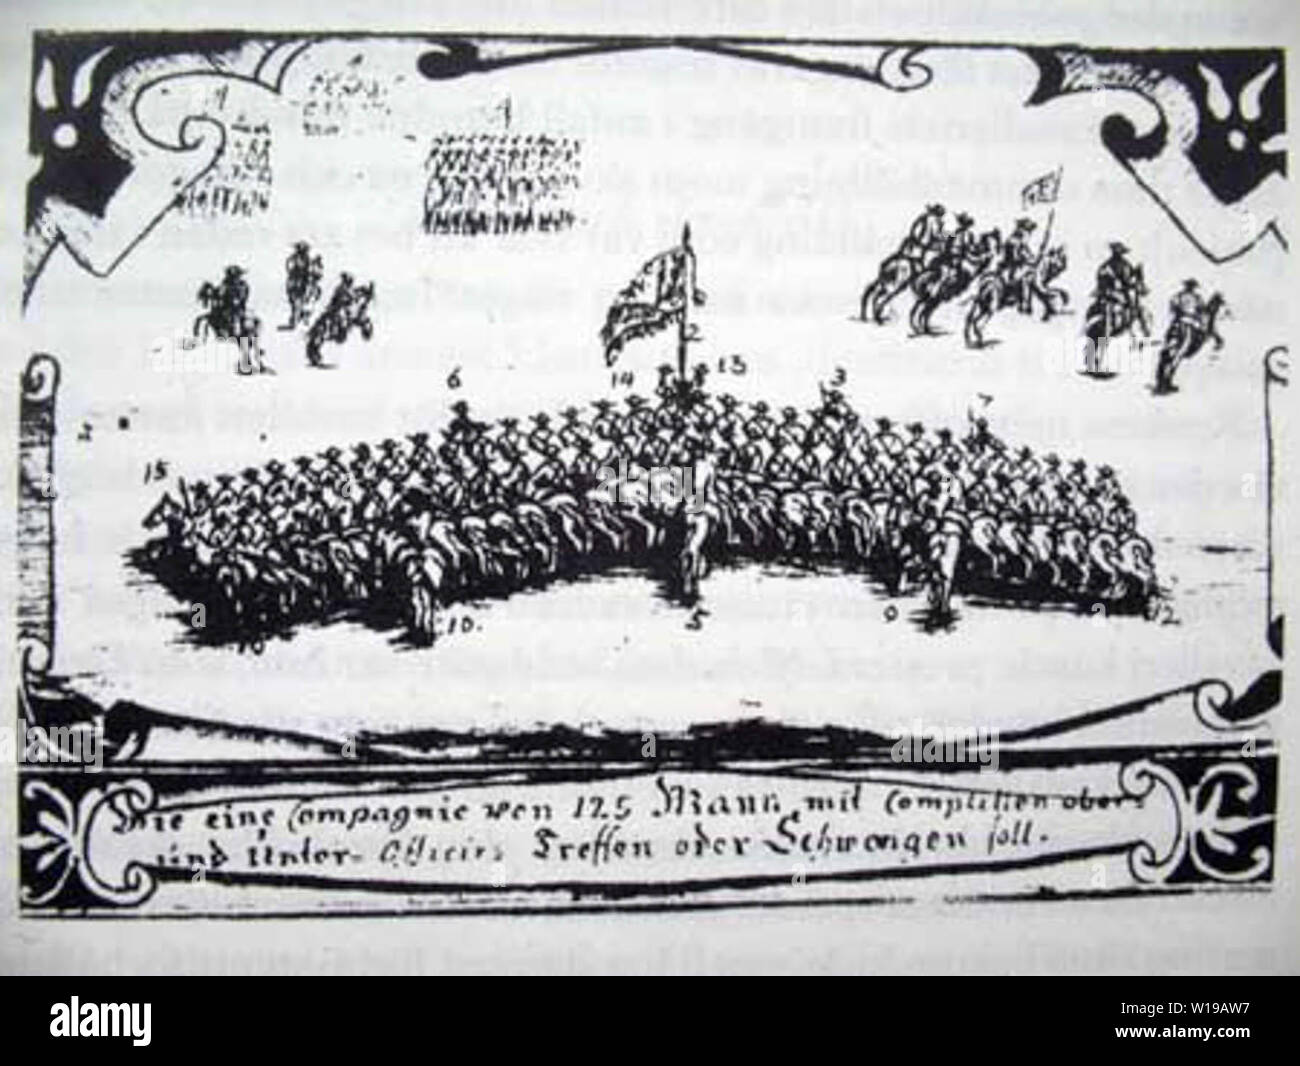 A
A
A
2
6
14
13
3
7
15
10.
5
9
12
10
Wie eine Compagnie von 125 Mann, mit Completten ober=
und Unter= Officirs Treffen oder Schwengen soll.
alamy
alamy
Image ID: W19AW7
www.alamy.com